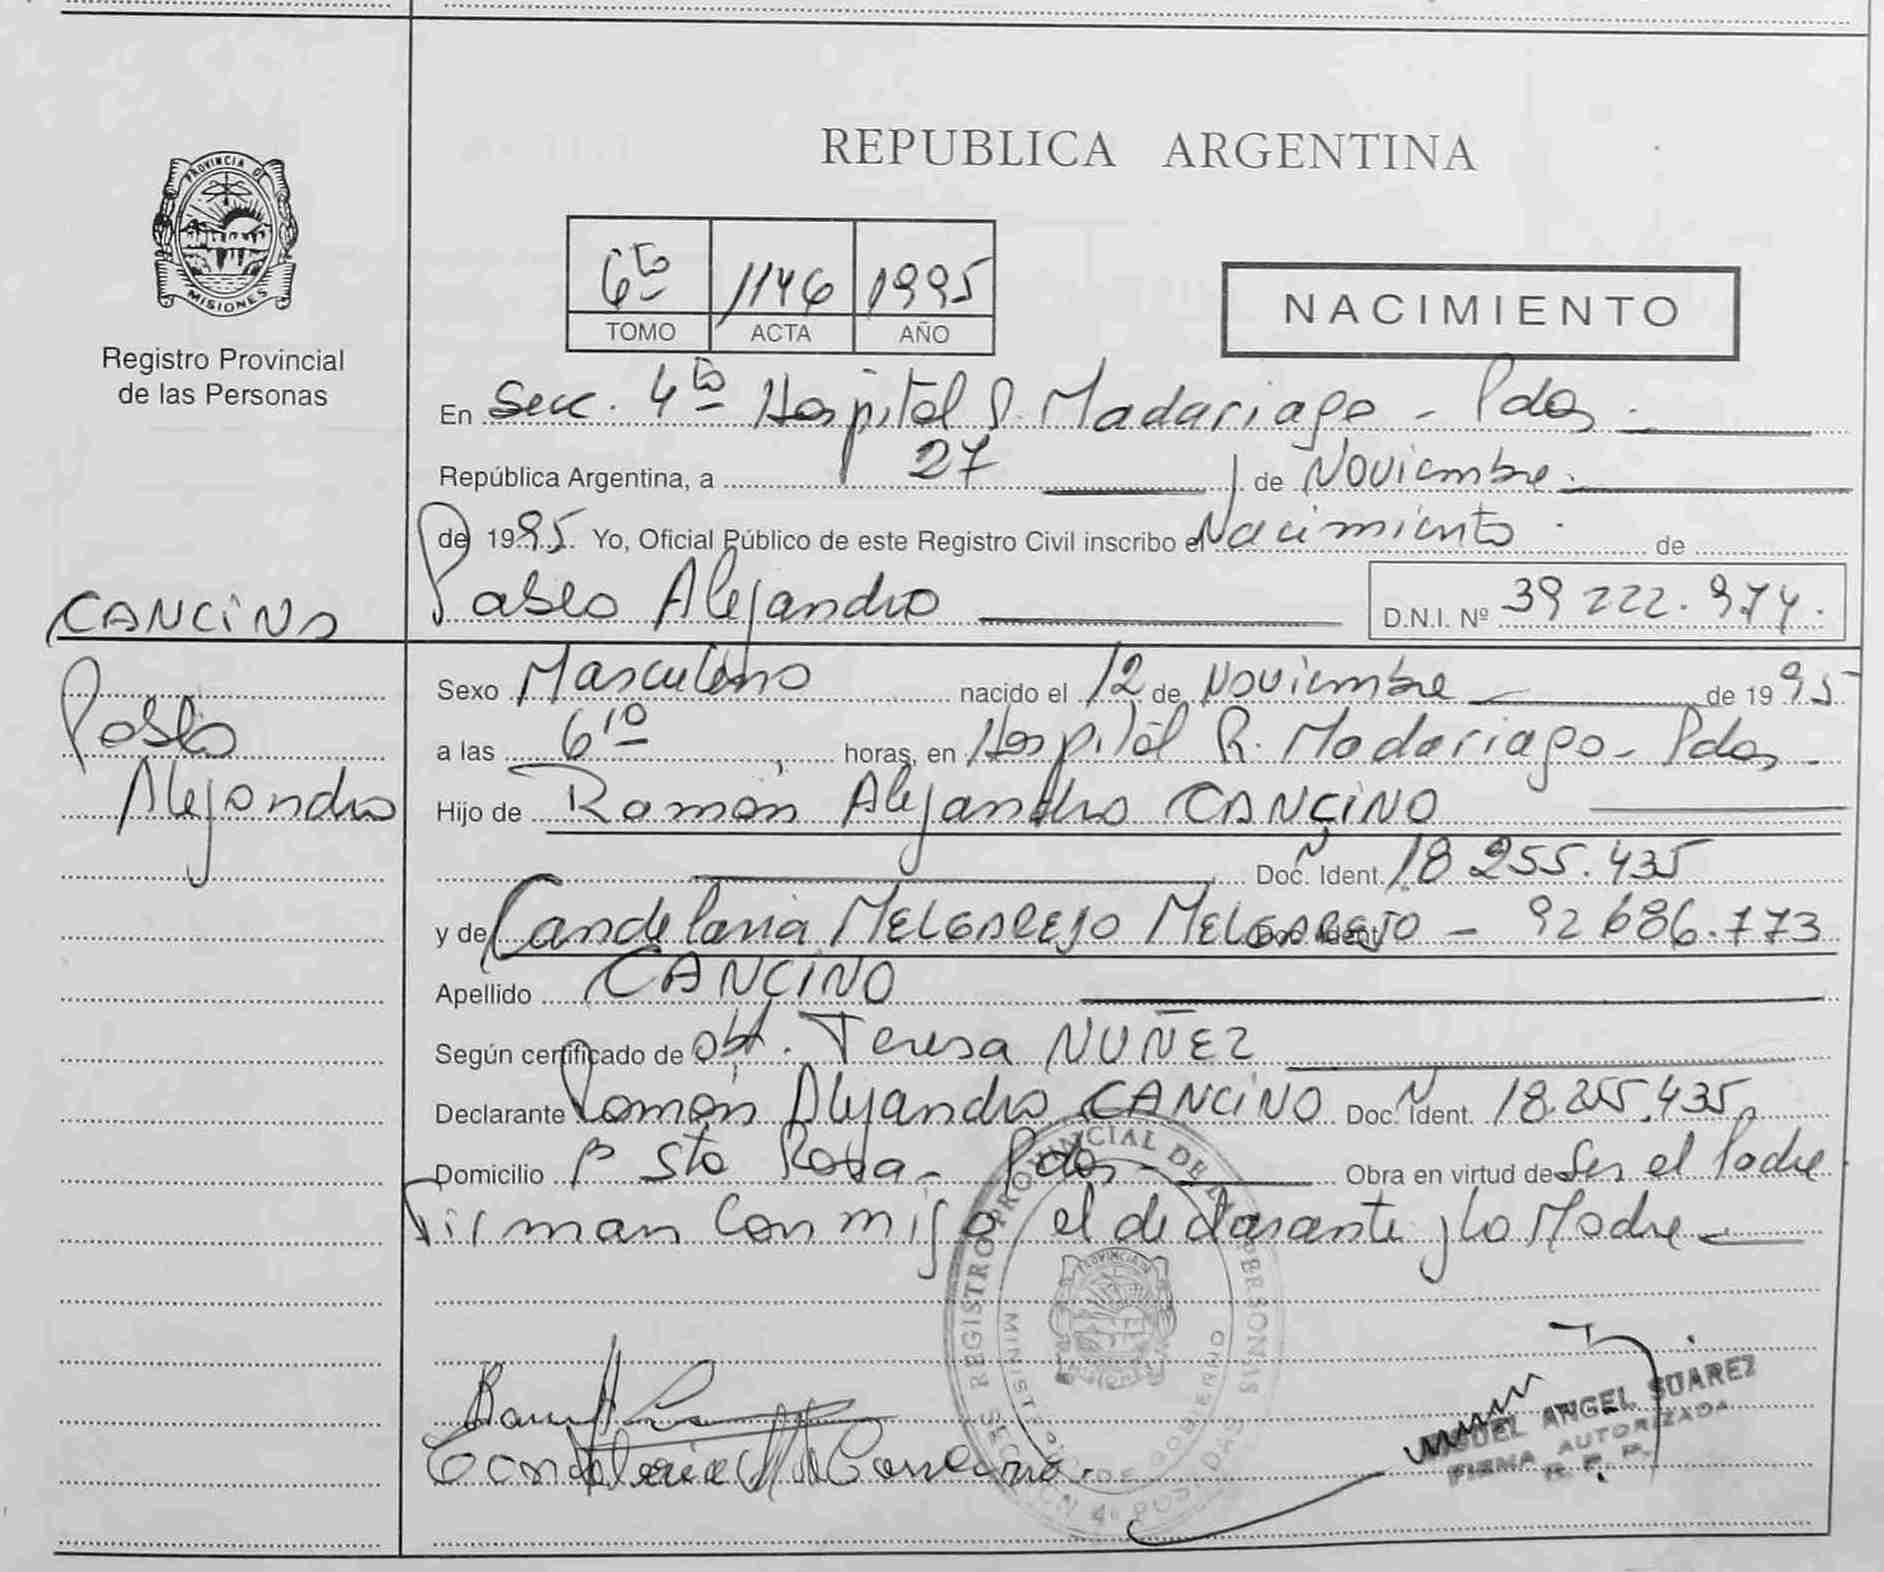 PROVINCIA DE
MISIONES
Registro Provincial
de las Personas
CANCINO
Pablo
Alejandro
REPUBLICA ARGENTINA
6to 1146 1995
TOMO ACTA AÑO
NACIMIENTO
En Secc. 4ta Hospital R. Madariaga - Pdas.
República Argentina, a 27 de Noviembre
de 1995 Yo, Oficial Público de este Registro Civil inscribo el Nacimiento de
Pablo Alejandro D.N.I. Nº 39 222.974.
Sexo Masculino nacido el 12 de Noviembre de 1995
a las 6 10 horas, en Hospital R. Madariaga - Pdas -
Hijo de Ramón Alejandro CANCINO
Doc. Ident. 18 255.435
y de Candelaria MELGAREJO MELGAREJO - Doc. Ident. 92 686.773
Apellido CANCINO
Según certificado de Obst. Teresa NUÑEZ
Declarante Ramón Alejandro CANCINO Doc. Ident. 18.255.435
Domicilio Bº Sta Rosa - Pdas - Obra en virtud de Ser el Padre
Firman conmigo el declarante y la Madre
REGISTRO PROVINCIAL DE LAS PERSONAS
MINISTERIO DE GOBIERNO
SECCION 4º POSADAS
PROVINCIA DE
Candelaria M de Cancino.
MIGUEL ANGEL SUAREZ
FIRMA AUTORIZADA
R. P. P.